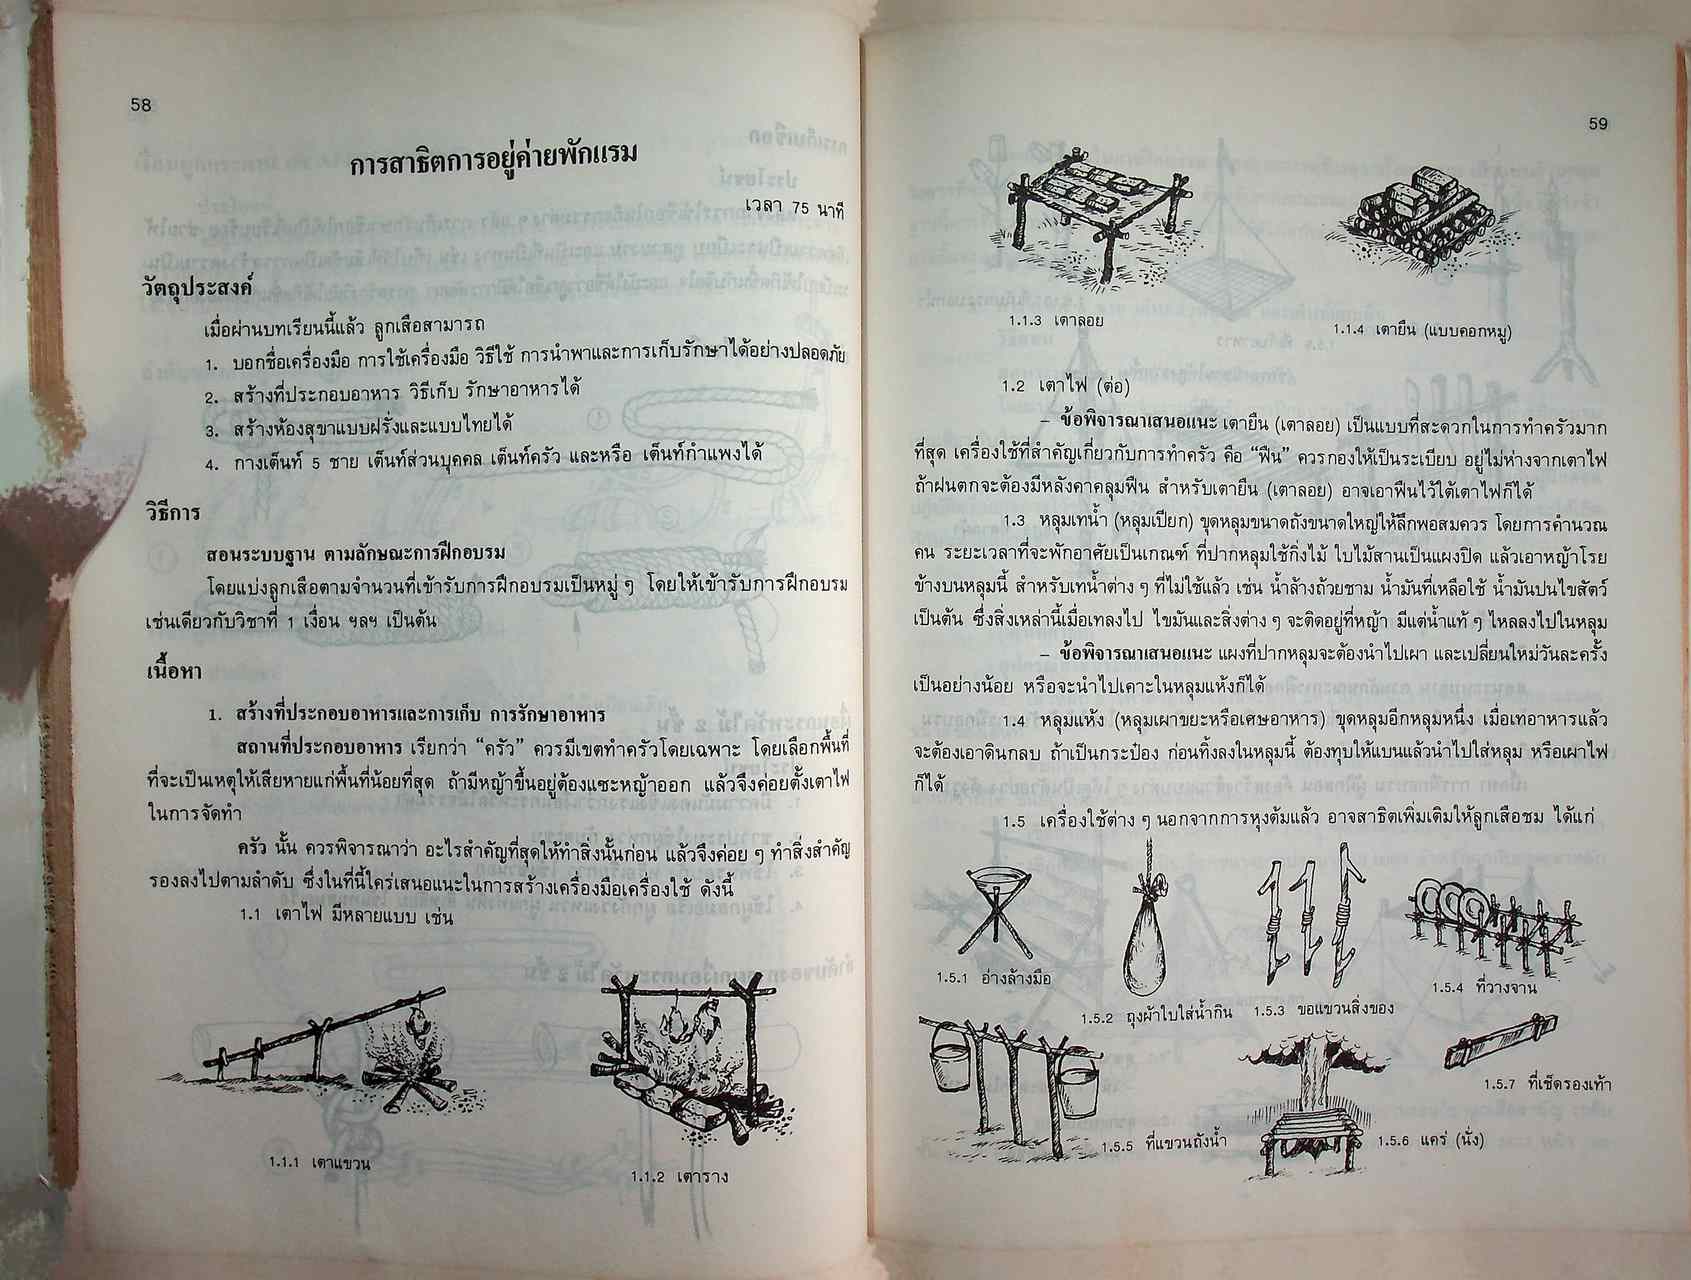 58
การสาธิตการอยู่ค่ายพักแรม
เวลา 75 นาที
วัตถุประสงค์
เมื่อผ่านบทเรียนนี้แล้ว ลูกเสือสามารถ
1. บอกชื่อเครื่องมือ การใช้เครื่องมือ วิธีใช้ การนำพาและการเก็บรักษาได้อย่างปลอดภัย
2. สร้างที่ประกอบอาหาร วิธีเก็บ รักษาอาหารได้
3. สร้างห้องสุขาแบบฝรั่งและแบบไทยได้
4. กางเต็นท์ 5 ชาย เต็นท์ส่วนบุคคล เต็นท์ครัว และหรือ เต็นท์กำแพงได้
วิธีการ
สอนระบบฐาน ตามลักษณะการฝึกอบรม
โดยแบ่งลูกเสือตามจำนวนที่เข้ารับการฝึกอบรมเป็นหมู่ ๆ โดยให้เข้ารับการฝึกอบรม
เช่นเดียวกับวิชาที่ 1 เงื่อน ฯลฯ เป็นต้น
เนื้อหา
1. สร้างที่ประกอบอาหารและการเก็บ การรักษาอาหาร
สถานที่ประกอบอาหาร เรียกว่า “ครัว” ควรมีเขตทำครัวโดยเฉพาะ โดยเลือกพื้นที่
ที่จะเป็นเหตุให้เสียหายแก่พื้นที่น้อยที่สุด ถ้ามีหญ้าขึ้นอยู่ต้องแซะหญ้าออก แล้วจึงค่อยตั้งเตาไฟ
ในการจัดทำ
ครัว นั้น ควรพิจารณาว่า อะไรสำคัญที่สุดให้ทำสิ่งนั้นก่อน แล้วจึงค่อย ๆ ทำสิ่งสำคัญ
รองลงไปตามลำดับ ซึ่งในที่นี้ใคร่เสนอแนะในการสร้างเครื่องมือเครื่องใช้ ดังนี้
1.1 เตาไฟ มีหลายแบบ เช่น
1.1.1 เตาแขวน
1.1.2 เตาราง
59
1.1.3 เตาลอย
1.1.4 เตายืน (แบบคอกหมู)
1.2 เตาไฟ (ต่อ)
– ข้อพิจารณาเสนอแนะ เตายืน (เตาลอย) เป็นแบบที่สะดวกในการทำครัวมาก
ที่สุด เครื่องใช้ที่สำคัญเกี่ยวกับการทำครัว คือ “ฟืน” ควรกองให้เป็นระเบียบ อยู่ไม่ห่างจากเตาไฟ
ถ้าฝนตกจะต้องมีหลังคาคลุมฟืน สำหรับเตายืน (เตาลอย) อาจเอาฟืนไว้ใต้เตาไฟก็ได้
1.3 หลุมเทน้ำ (หลุมเปียก) ขุดหลุมขนาดถังขนาดใหญ่ให้ลึกพอสมควร โดยการคำนวณ
คน ระยะเวลาที่จะพักอาศัยเป็นเกณฑ์ ที่ปากหลุมใช้กิ่งไม้ ใบไม้สานเป็นแผงปิด แล้วเอาหญ้าโรย
ข้างบนหลุมนี้ สำหรับเทน้ำต่าง ๆ ที่ไม่ใช้แล้ว เช่น น้ำล้างถ้วยชาม น้ำมันที่เหลือใช้ น้ำมันปนไขสัตว์
เป็นต้น ซึ่งสิ่งเหล่านี้เมื่อเทลงไป ไขมันและสิ่งต่าง ๆ จะติดอยู่ที่หญ้า มีแต่น้ำแท้ ๆ ไหลลงไปในหลุม
– ข้อพิจารณาเสนอแนะ แผงที่ปากหลุมจะต้องนำไปเผา และเปลี่ยนใหม่วันละครั้ง
เป็นอย่างน้อย หรือจะนำไปเคาะในหลุมแห้งก็ได้
1.4 หลุมแห้ง (หลุมเผาขยะหรือเศษอาหาร) ขุดหลุมอีกหลุมหนึ่ง เมื่อเทอาหารแล้ว
จะต้องเอาดินกลบ ถ้าเป็นกระป๋อง ก่อนทิ้งลงในหลุมนี้ ต้องทุบให้แบนแล้วนำไปใส่หลุม หรือเผาไฟ
ก็ได้
1.5 เครื่องใช้ต่าง ๆ นอกจากการหุงต้มแล้ว อาจสาธิตเพิ่มเติมให้ลูกเสือชม ได้แก่
1.5.1 อ่างล้างมือ
1.5.2 ถุงผ้าใบใส่น้ำกิน
1.5.3 ขอแขวนสิ่งของ
1.5.4 ที่วางจาน
1.5.5 ที่แขวนถังน้ำ
1.5.6 แคร่ (นั่ง)
1.5.7 ที่เช็ดรองเท้า